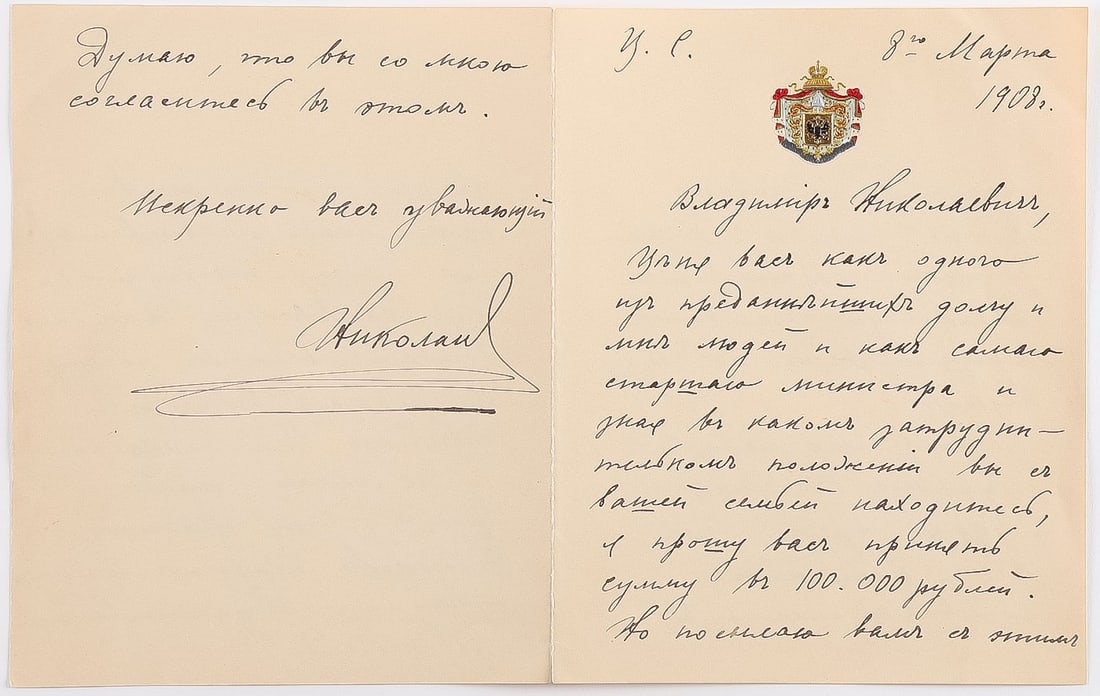 Ц. С. 8го Марта
1908г.
Владиміръ Николаевичъ,
Цѣня васъ какъ одного
изъ преданнѣйшихъ долгу и
мнѣ людей и какъ самаго
старшаго министра и
зная въ какомъ затрудни–
тельномъ положеніи вы съ
вашей семьей находитесь,
я прошу васъ принять
сумму въ 100.000 рублей.
Но посылаю вамъ съ этимъ
Думаю, что вы со мною
согласитесь въ этомъ.
Искренно васъ уважающій
Николай